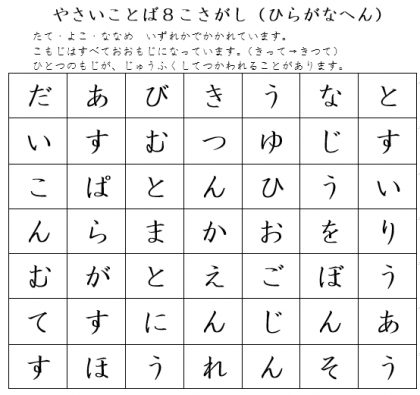 やさいことば８こさがし（ひらがなへん）
たて・よこ・ななめ　いずれかでかかれています。
こもじはすべておおもじになっています。（きって→きつて）
ひとつのもじが、じゅうふくしてつかわれることがあります。
だ あ び き う な と
い す む つ ゆ じ す
こ ぱ と ん ひ う い
ん ら ま か お を り
む が と え ご ぼ う
て す に ん じ ん あ
す ほ う れ ん そ う